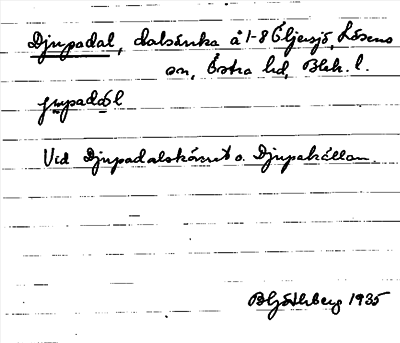 Djupadal, dalsänka å 1-8 Öljersjö, Lösens
sn, Östra hd, Blek. l.
jupadál
Vid Djupadalskärret o. Djupakällan.
1935